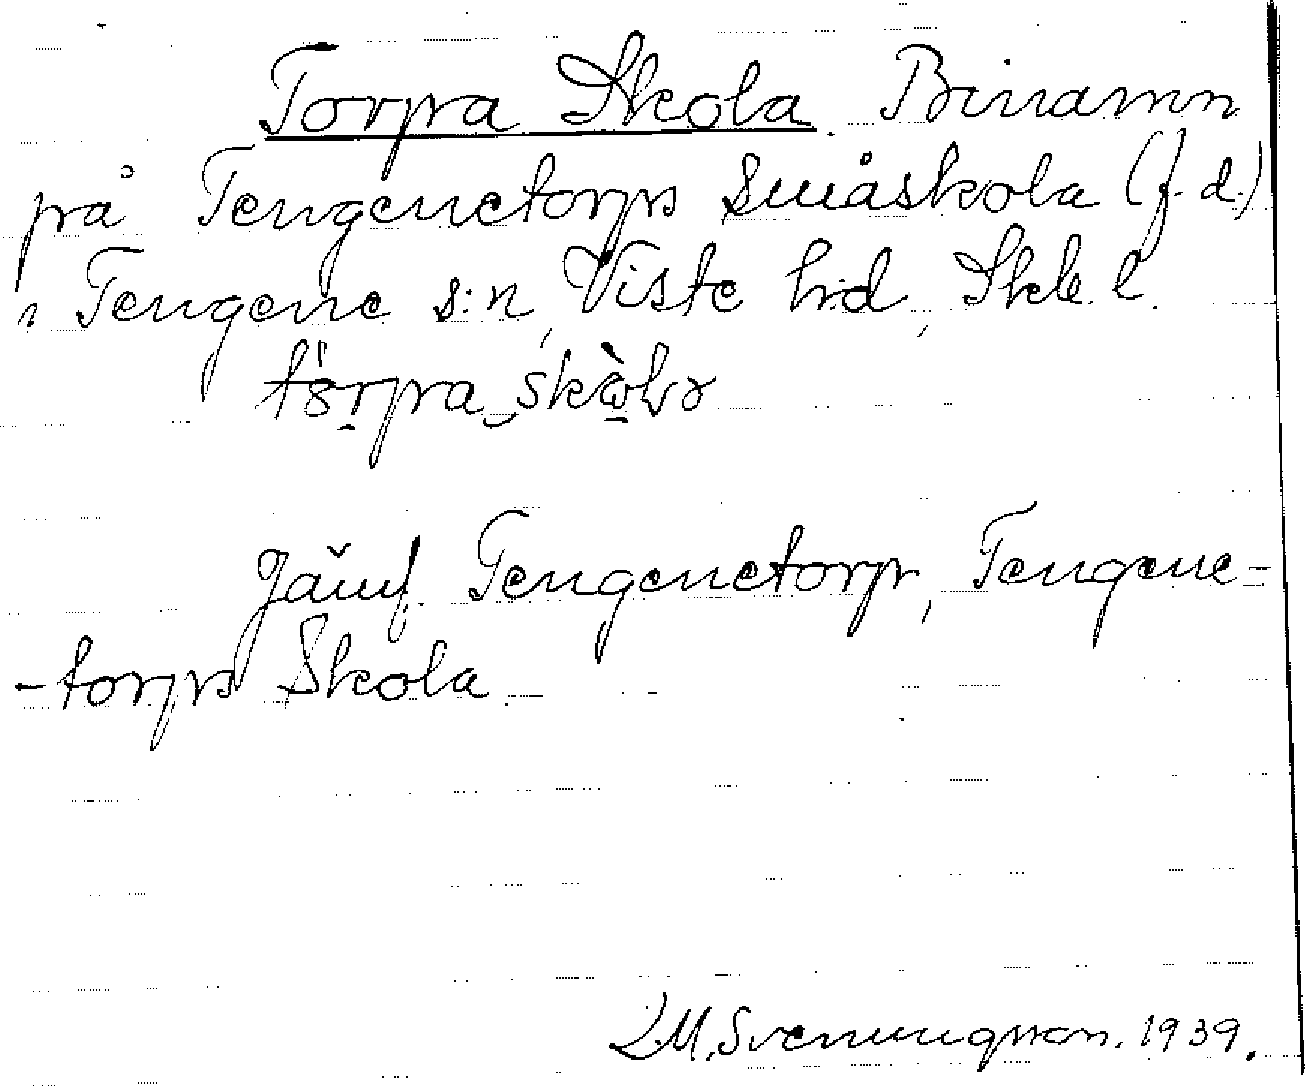 Torpa Skola. Binamn
på Tengenetorps småskola (f.d.)
i Tengene s:n, Viste hd, Skbl.
Jämf. Tengenetorp, Tengene-
-torps Skola.
L.M. Svenungsson. 1939.